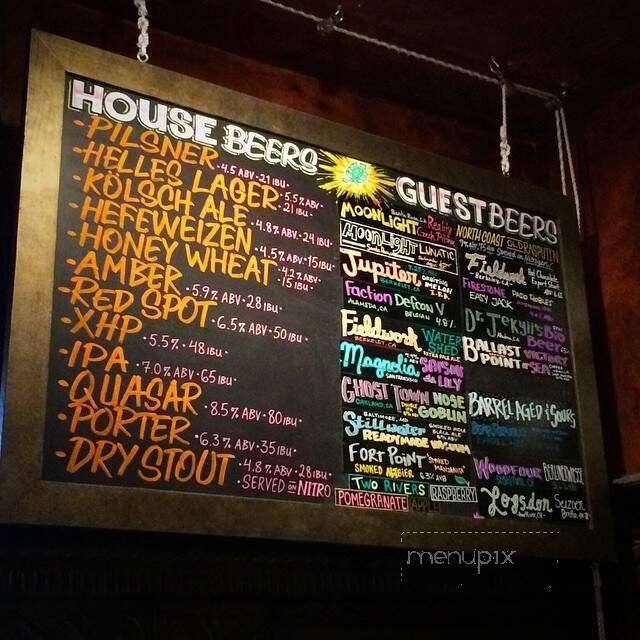 HOUSE BEERS
-PILSNER · 4.5 ABV · 21 IBU -
-HELLES LAGER · 5.5% ABV · 21 IBU -
-KÖLSCH ALE · 4.8% ABV · 24 IBU -
-HEFEWEIZEN · 4.5% ABV · 15 IBU -
-HONEY WHEAT · 4.2% ABV · 15 IBU -
-AMBER · 5.9% ABV · 28 IBU -
-RED SPOT · 6.5% ABV · 50 IBU -
-XHP · 5.5% · 48 IBU -
-IPA · 7.0% ABV · 65 IBU -
-QUASAR · 8.5% ABV · 80 IBU -
-PORTER · 6.3% ABV · 35 IBU -
-DRY STOUT · 4.8% ABV · 28 IBU -
SERVED ON NITRO
GUEST BEERS
MOONLIGHT Reality Czech
MOONLIGHT LUNATIC
Jupiter
BERKELEY, CA
Faction Defcon V
ALAMEDA, CA BELGIAN 4.8%
Fieldwork WATER SHED
BERKELEY, CA
Magnolia SAISON de LILY
SAN FRANCISCO
GHOST TOWN NOSE GOBLIN
OAKLAND, CA
BALTIMORE, MD
Stillwater
READYMADE VACUUM
FORT POINT
SMOKED
TWO RIVERS
POMEGRANATE RASPBERRY
NORTH COAST OLD RASPUTIN
Fieldwork
FIRESTONE PASO ROBLES
EASY JACK
Dr. JEKYLL'S BIO BEER
BALLAST POINT VICTORY at SEA
BARREL AGED & SOURS
WOODFOUR
Logsdon Seizoen
menupix